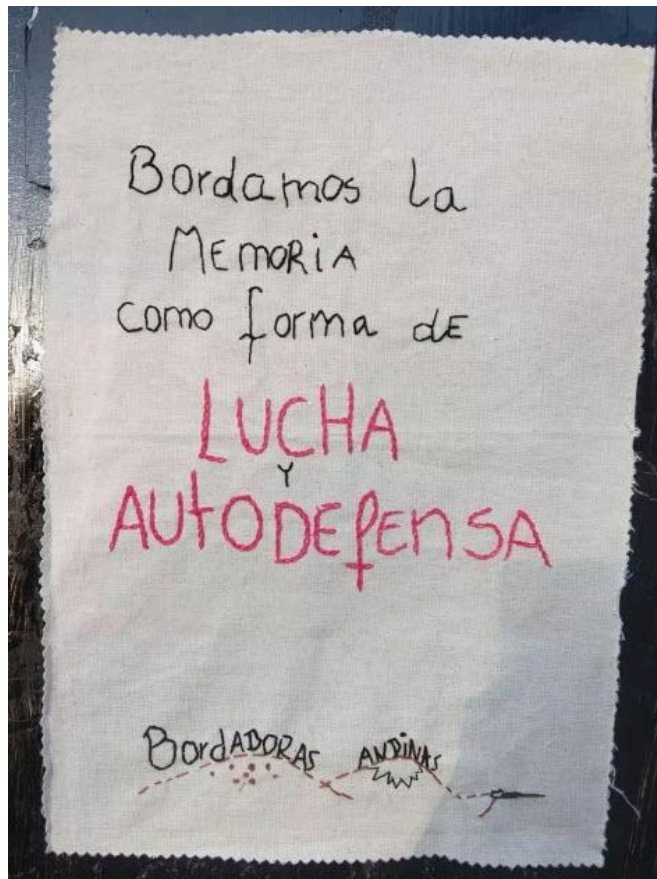 Bordamos la
MEMORiA
como forma de
LUCHA
Y
AUtODEfEnSA
BordADORAS ANDiNAS